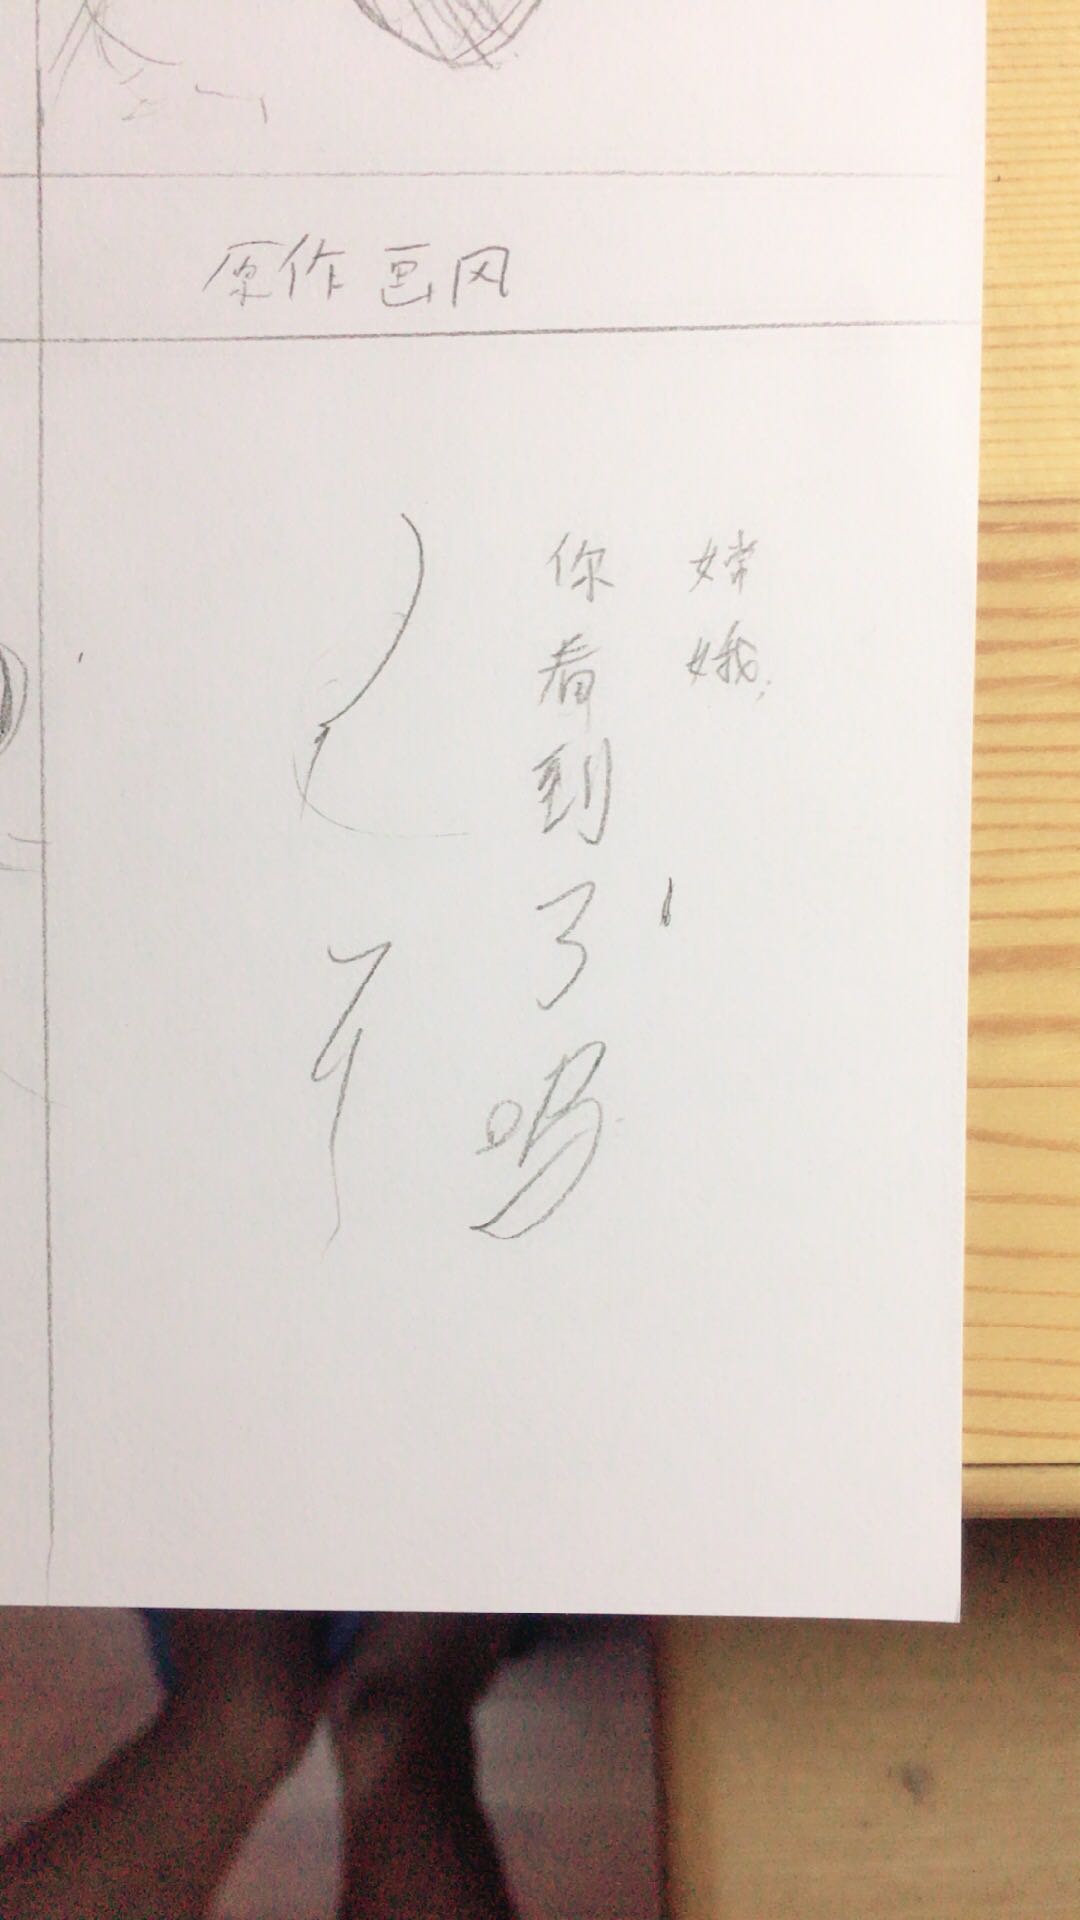 原作画风
嫦娥,
你看到了吗